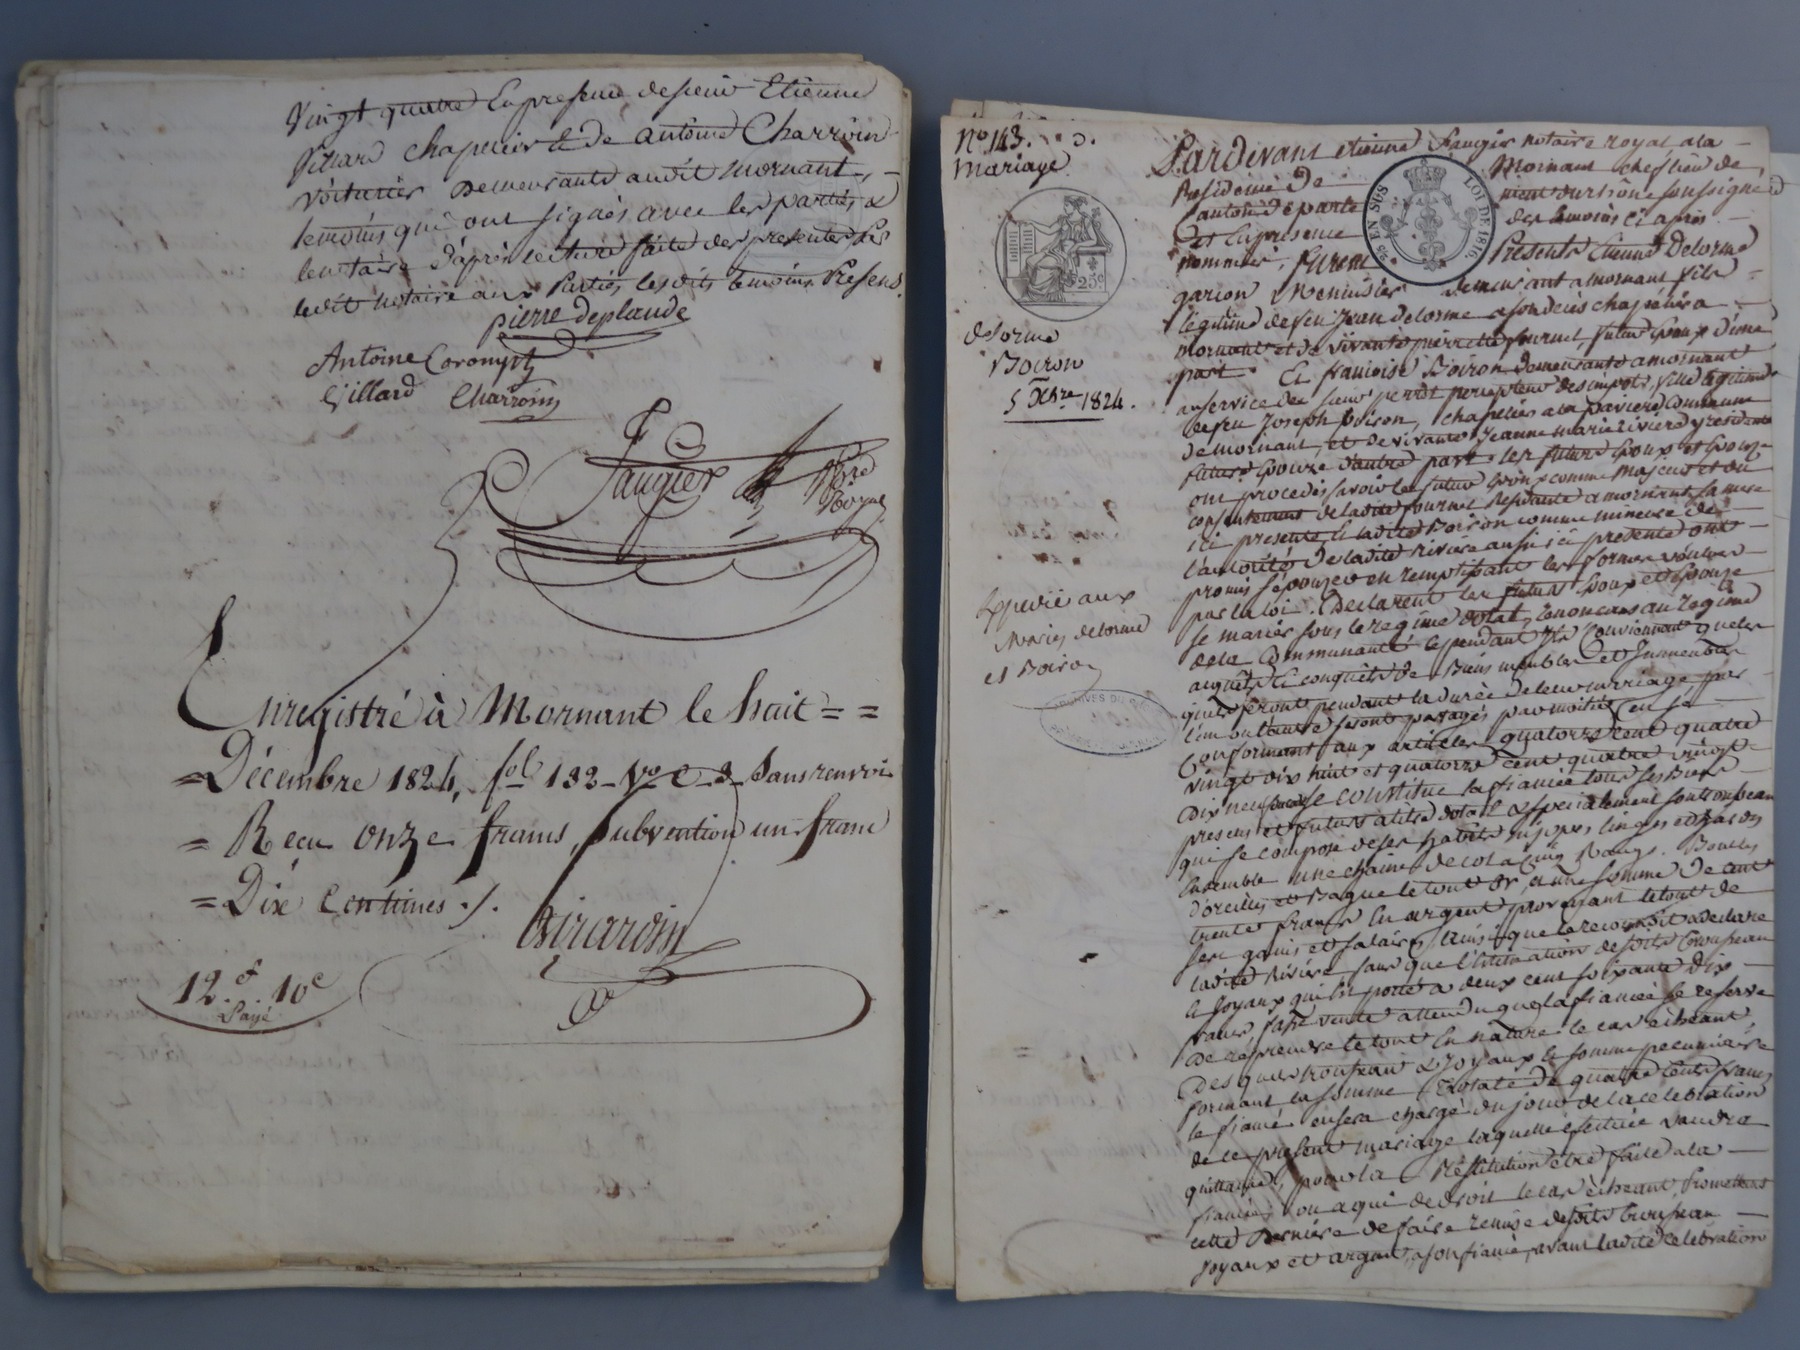 Vingt quatre En presence de sieur Etienne
Villard chapelier & de antoine Charroin
voiturier demeurants audit mornant, –
temoins qui ont signés avec les parties &
le notaire d'après lecture faite des presentes par
ledit notaire aux Parties, lesdits temoins Presens.
pierre deplaude
Antoine Coromyt
Gillard Charroin
Faugier
Nre
Royal
Enregistré à Mornant le huit = =
= Décembre 1824, fol 133 Vo C 3 Sans renvoi
= Recu onze francs, subvention un franc
= Dix Centimes ./.
Girardin
12.f 10c
Payé
No 143.
mariage
25c
delorme
Boiron
5 Xbre 1824.
Expedié aux
mariés delorme
et Boiron
ARCHIVES DU
25 EN SUS
LOI DE 1816.
Pardevant etienne Faugier notaire royal ala –
Residence de Mornant chef lieu de
Canton departement du rhône soussigné
et En presence des temoins ci après –
nommés, furent Presents Etienne Delorme
garçon Menuisier demeurant a mornant fils –
légitime de feu Jean delorme a son decès chapelier a –
mornant et de vivante pierrette fournel, futur Epoux d'une
part. Et francoise Boiron demeurante a mornant
au service du sieur perret percepteur des impots, fille légitime
de feu Joseph Boiron, chapelier a la paviere Commune
de mornant, et de vivante Jeanne marie riviere y residente
future Epouze d'autre part. les futurs Epoux et Epouze
ont procedés savoir le futur Epoux comme majeur et du
consentement de ladite fournel residante a mornant sa mere
ici presente, & ladite Boiron comme mineure de –
l'autorité de ladite riviere aussi ici presente ont
promis s'épouzer en remplissant les formes voulues –
par la loi. Declarent les futurs Epoux et Epouze
se mariér sous le regime dotal, renoncans au regime
de la Communauté cependant Ils Conviennent que les
acquêts & conquêts de Biens meubles et Immeubles
quils feront pendant la durée de leur mariage, par –
l'un ou l'autre seront partagés par moitié En se
Conformant aux articles quatorze cent quatre
vingt dix huit et quatorze cent quatre vingt
Dix neuf se constitue la fiancée tous ses Biens –
presens et futurs a titre dotal & specialement son trousseau
qui se compose de ses habits nippes linges et hardes
Ensemble une chaine de col a Cinq Rangs. Boucles
d'oreilles et Bague le tout Or, et une somme de cent
trente francs En argent provenant le tout de
ses gains et salaires ainsi que le reconnoit & declare
ladite riviere sauf que l'estimation desdits trousseau
& Joyaux qui est portée a deux cent soixante dix –
francs, fasse vente attendu que la fiancée se reserve
de reprendre le tout En nature le cas échéant,
Des quels trousseau & Joyaux & somme pecuniaire
formant la somme totale de quatre cents francs
le fiancé en sera chargé du jour de la celebration
de ce present mariage laquelle éffectuée vaudra
quittance, pour la Restitution etre faite a la –
fiancée ou a qui de droit le cas échéant, Promettant
cette derniere de faire remise desdits trousseau –
Joyaux et argent, a son fiancé, avant ladite celebration